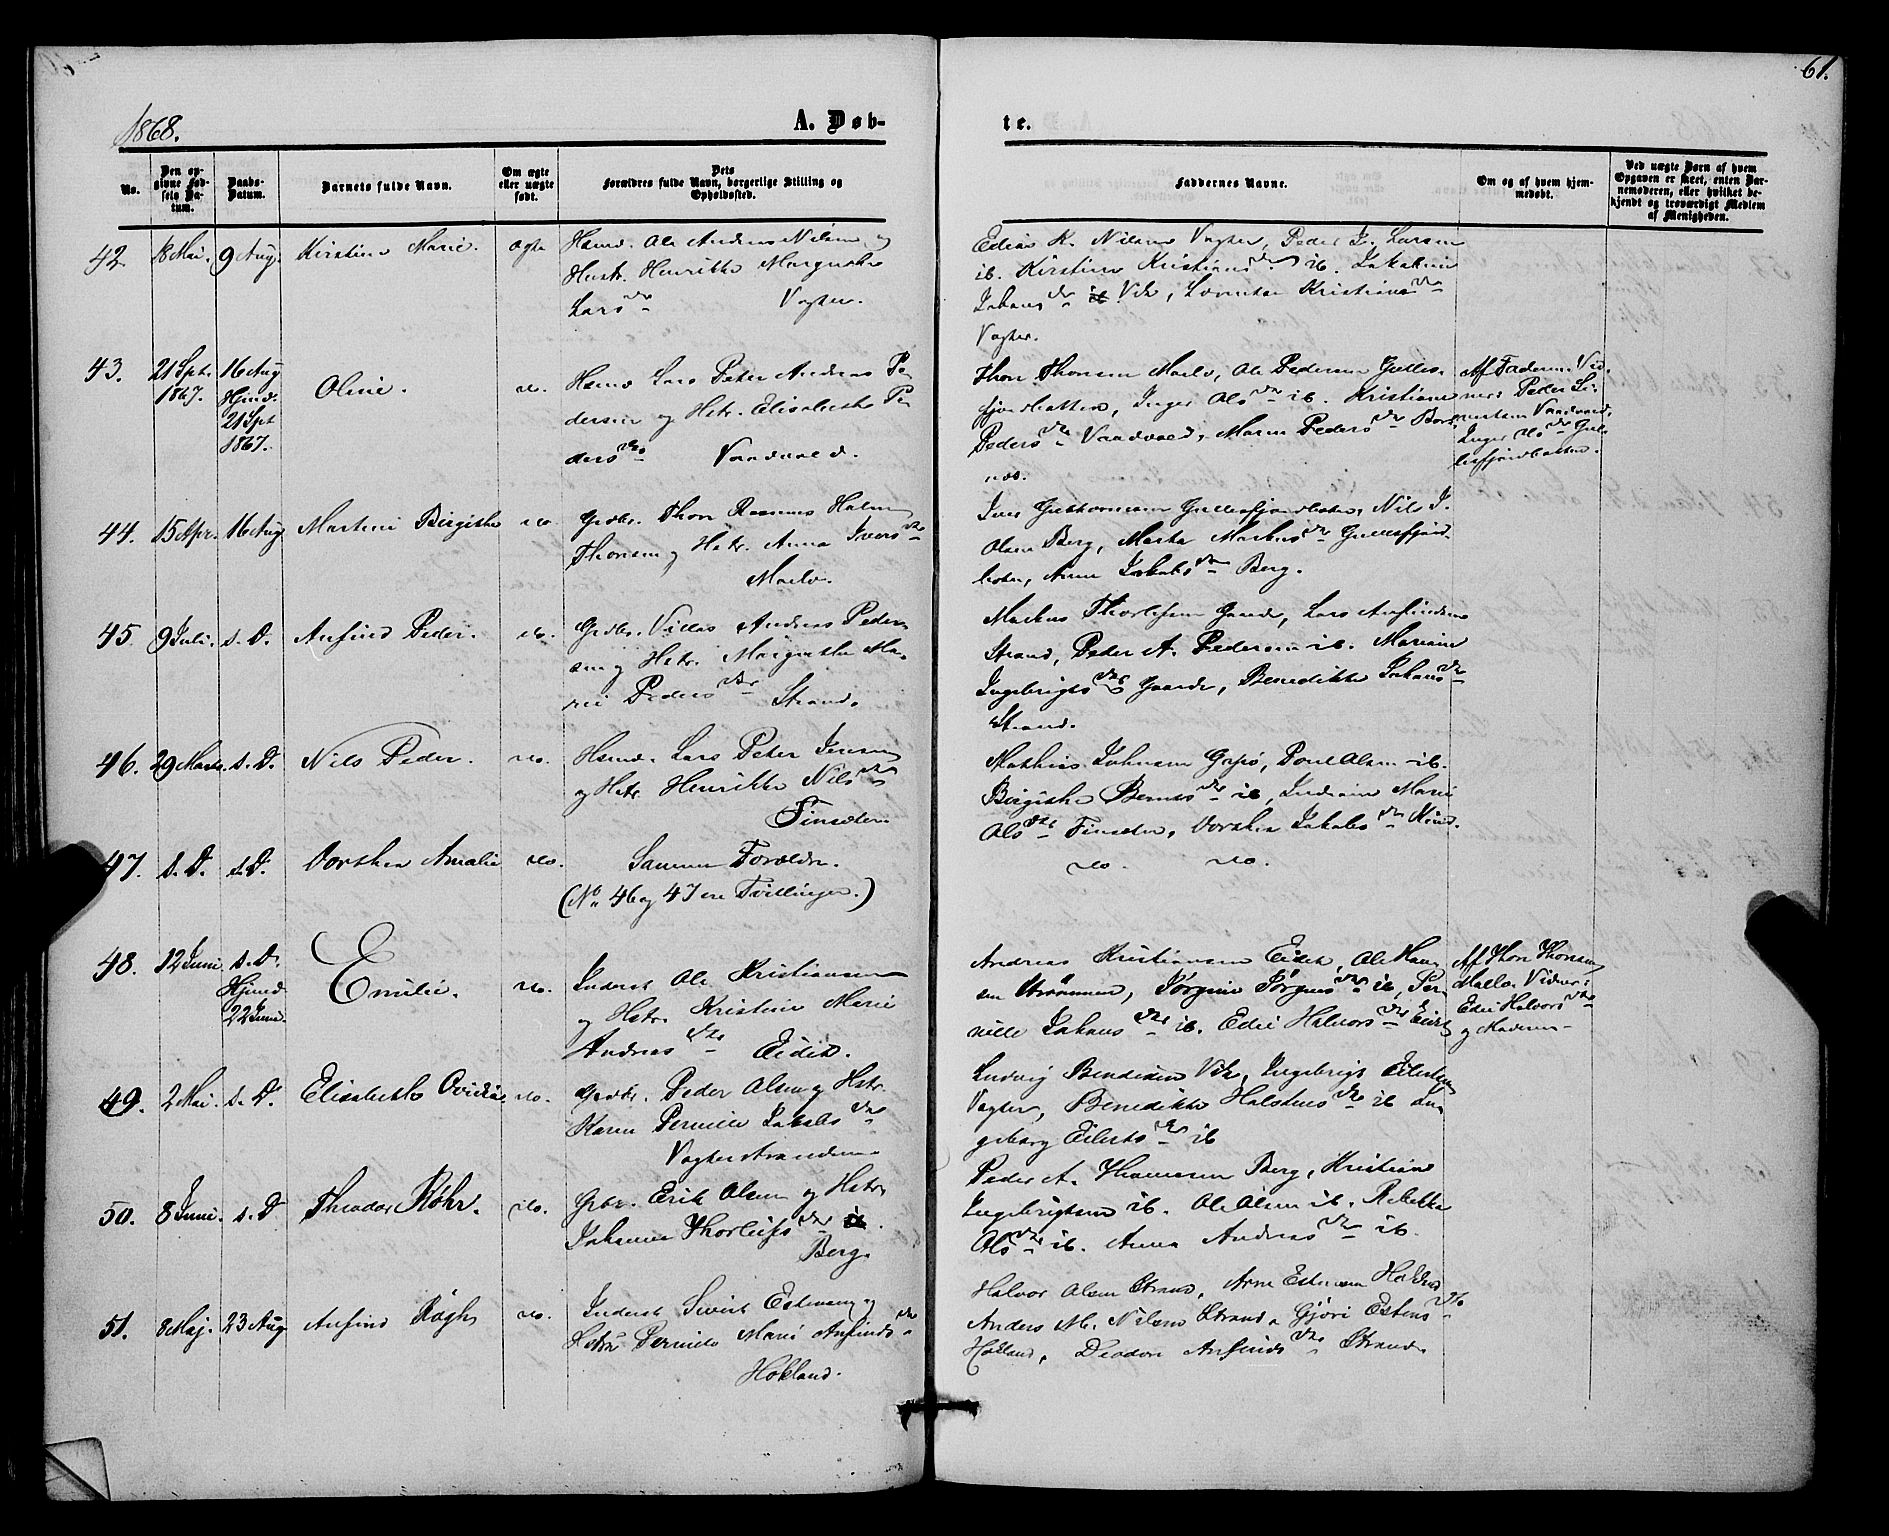 61.
1868.
A. Døb-
te.
No.
Den op-
givne Fød-
sels Da-
tum.
Daabs-
Datum.
Barnets fulde Navn.
Om ægte
eller uægte
født.
Dets
Forældres fulde Navn, borgerlige Stilling og
Opholdssted.
Faddernes Navne.
Om og af hvem hjem-
medøbt.
Ved uægte Børn af hvem
Opgaven er skeet, enten Bar-
nemoderen, eller hvilket be-
kjendt og troværdigt Medlem
af Menigheden.
42. 18 Mai. 9 Aug. Kirstine Marie. Ægte Hsmd. Ole Andreas Nilsen og
Hustr. Henrikke Margrethe
Lars dtr Vogter.
Edias K. Nilsen Vogter, Peder L. Larsen
ib. Kirstine Kristians dtr ib.
Johans dtr Vik, Kristians dtr
Vogter.
43. 21 Spt. 1867. 16 Aug Hjmd. 21 Spt 1867. Oline. do. Hsmd Lars Peter Andreas Pe-
dersen og Hstr. Elisabeth Pe-
ders dtr Vaadvold.
Thore Thorsen Mælø, Ole Pedersen Gulles-
fjordbotten, Inger Ols dtr ib. Kristiane
Peders dtr Vaadvold, Maren Peders dtr Bork-
næs.
Af Faderen. Vid-
ner: Peder
Vaadvold,
Inger Ols dtr Gul-
lesfjordbotten.
44. 15 Apr. 16 Aug Martine Birgithe do. Grdbr. Thore Rasmus Holm
Thorsen og Hstr. Anna Ivers dtr
Mælø.
Iver Guttormsen Gullesfjordbotten, Nils J.
Olsen Berg, Marta Markus dtr Gullesfjord-
botten, Anne Jakobs dtr Berg.
45 9 Juli. s. D. Anfind Peder. do. Grdbr. Villas Andreas Peder-
sen og Hstr. Margrethe Ma-
rie Peders dtr Strand.
Markus Thorleifsen Gaarde, Lars Anfindsen
Strand, Peder A. Pedersen ib. Mariane
Ingebrigts dtr Gaarde, Benedikte Johans dtr
Strand.
46. 29 Marts. s. D. Nils Peder. do. Hsmd. Lars Peter Jensen
og Hstr. Henrikke Nils dtr
Finsæter
Mathias Johnsen Gapø, Poul Olsen ib.
Birgithe Bernts dtr ib, Marie
Ols dtr Finsæter, Dorthea Jakobs dtr
47. s. D. s. D. Dorthea Amalie do. Samme Forældre.
(No 46 og 47 ere Tvillinger.)
do. do.
48. 12 Juni s. D. Hjmd 22 Juni. Emilie. do. Inderst Ole Kristiansen
og Hstr. Kristine Marie
Andreas dtr Eidet.
Andreas Kristiansen Eidet, Ole Han-
sen Strømmen, Jørgine Jørgens dtr ib, Per-
nille Johans dtr ib. Edie Halvors dtr Eidet
Af Thore Thorsen
Mælø. Vidner:
Edie Halvors dtr
og Moderen
49. 2 Mai. s. D. Elisabeth Ovidia do. Grdbr. Peder Olsen og Hstr.
Karen Pernille Jakobs dtr
Vogterstranden
Ludvig Bendiksen Vik, Ingebrigt Eilertsen
Vogter, Benedikte Halstens dtr ib In-
geborg Eilerts dtr ib
50. 8 Juni. s. D Theodor Røhr. do. Grbr. Erik Olsen og Hstr
Johanna Thorleifs dtr
Berg.
Peder A. Thomassen Berg, Kristian
Ingebrigtsen ib. Ole Olsen ib. Rebekka
Ols dtr ib. Anna Andreas dtr ib.
51. 8 Maj. 23 Aug Anfind Røgh do. Inderst Sivert Estensen og
Hstr Pernille Marie Anfinds dtr
Hokland.
Halvor Olsen Strand, Arne Estensen Hokland
Anders M. Nilsen Strand, Gjøri Estens dtr
Hokland, Anfinds dtr Strand.